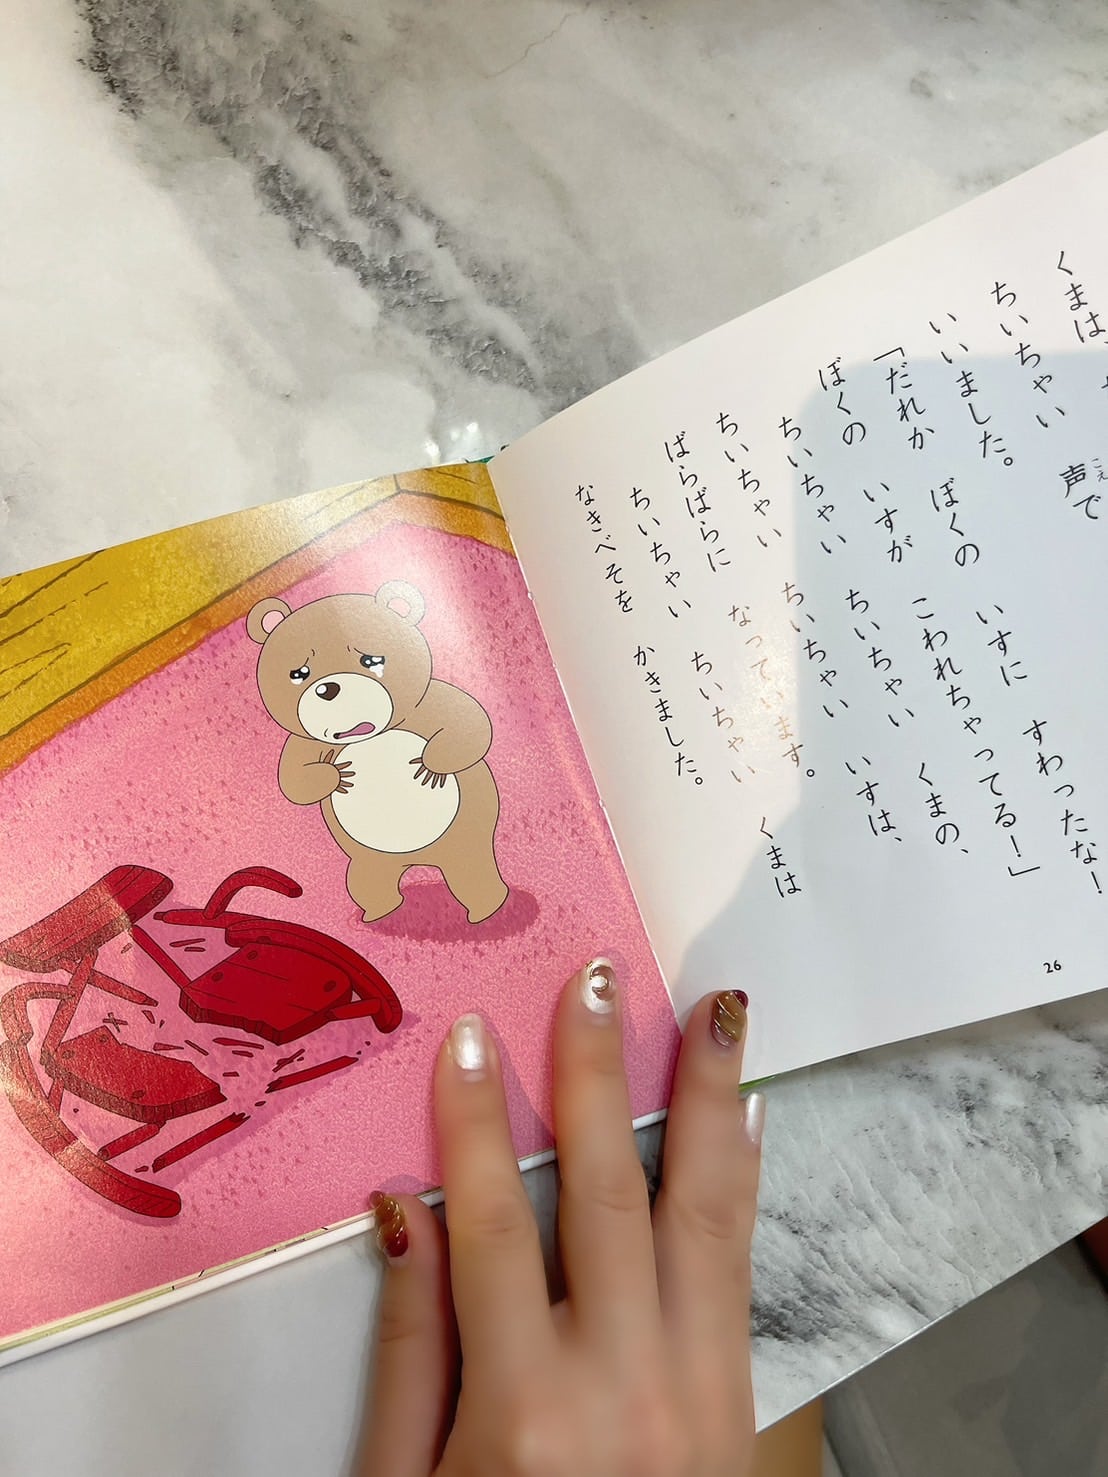 くまは、
ちいちゃい 声で
こえ
いいました。
「だれか ぼくの いすに すわったな!
ぼくの いすが こわれちゃってる!」
ちいちゃい ちいちゃい くまの、
ちいちゃい ちいちゃい いすは、
ばらばらに なっています。
ちいちゃい ちいちゃい くまは
なきべそを かきました。
26